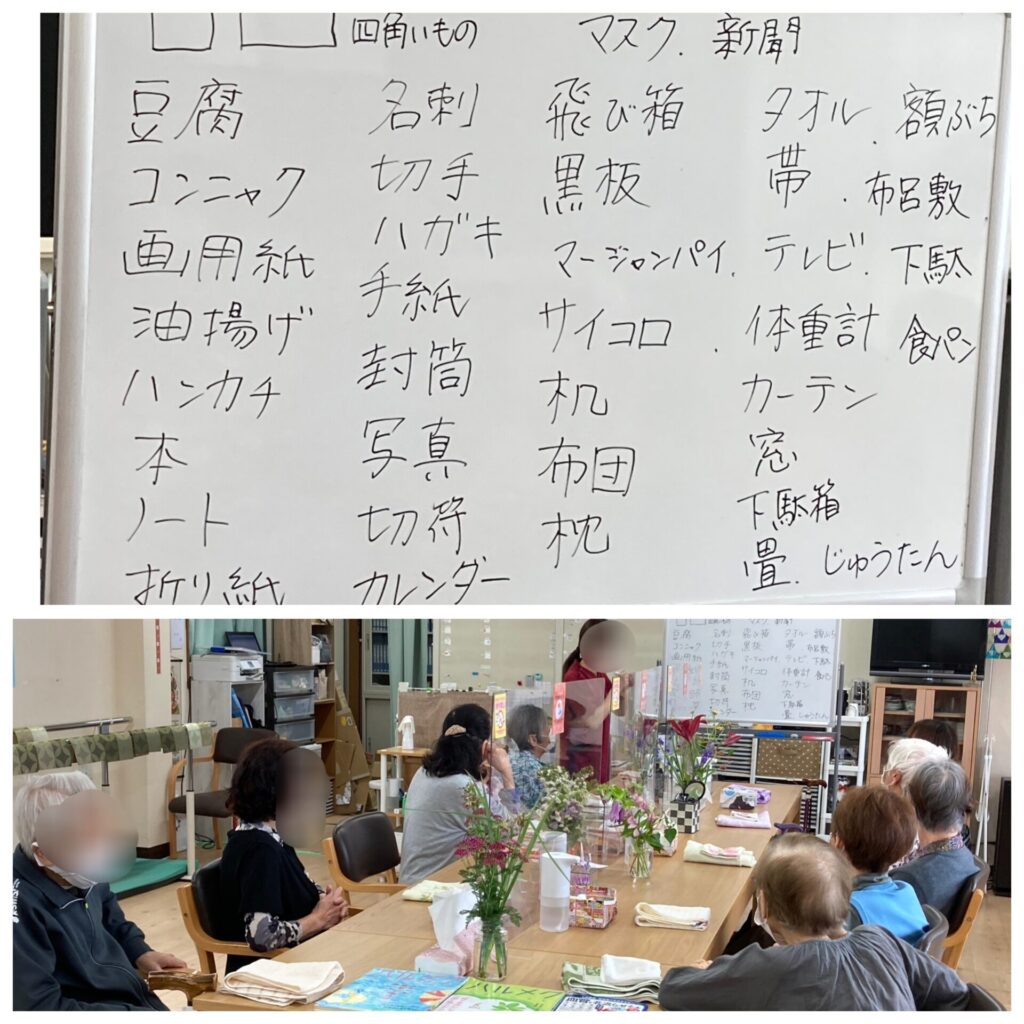 四角いもの マスク. 新聞
豆腐 名刺 飛び箱 タオル. 額ぶち
コンニャク 切手 黒板 帯. 布呂敷.
画用紙 ハガキ マージャンパイ. テレビ. 下駄
油揚げ 手紙 サイコロ. 体重計 食パン
ハンカチ 封筒 机 カーテン
本 写真 布団 窓
ノート 切符 枕 下駄箱
折り紙 カレンダー 畳. じゅうたん